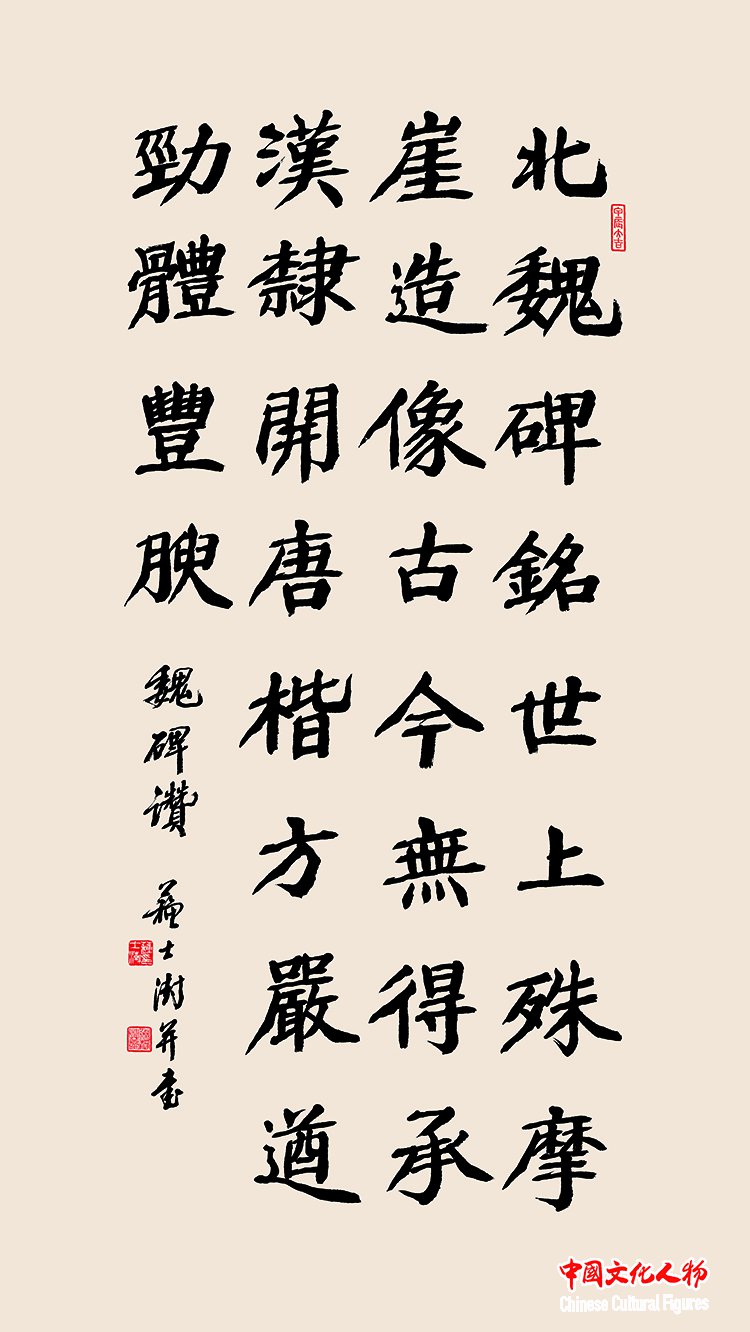 北魏碑銘世上殊摩
崖造像古今無得承
漢隸開唐楷方嚴遒
勁體豐腴
魏碑讚 蘇士澍并書
中國文化人物
Chinese Cultural Figures